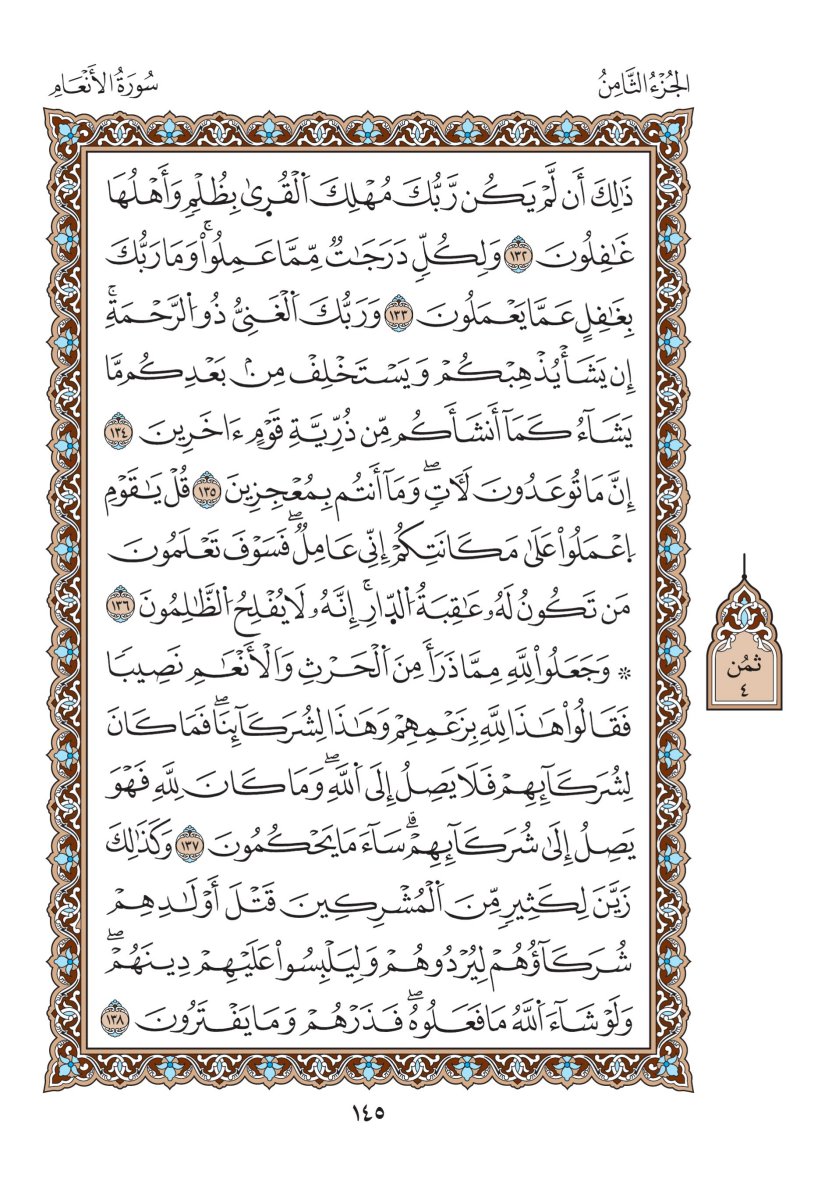 الجُزْءُ الثَّامِنُ
سُورَةُ الأَنْعَامِ
ذَٰلِكَ أَن لَّمْ يَكُن رَّبُّكَ مُهْلِكَ اَ۬لْقُر۪ىٰ بِظُلْمٖ وَأَهْلُهَا
غَٰفِلُونَۖ ١٣٢ وَلِكُلّٖ دَرَجَٰتٞ مِّمَّا عَمِلُواْۚ وَمَا رَبُّكَ
بِغَٰفِلٍ عَمَّا يَعْمَلُونَ ١٣٣ وَرَبُّكَ اَ۬لْغَنِيُّ ذُو اُ۬لرَّحْمَةِۚ
إِن يَشَأْ يُذْهِبْكُمْ وَيَسْتَخْلِفْ مِنۢ بَعْدِكُم مَّا
يَشَآءُ كَمَآ أَنشَأَكُم مِّن ذُرِّيَّةِ قَوْمٍ ءَاخَرِينَ ١٣٤
إِنَّ مَا تُوعَدُونَ لَأٓتٖۖ وَمَآ أَنتُم بِمُعْجِزِينَ ١٣٥ قُلْ يَٰقَوْمِ
اِ۪عْمَلُواْ عَلَىٰ مَكَانَتِكُمْ إِنِّي عَامِلٞۖ فَسَوْفَ تَعْلَمُونَ
مَن تَكُونُ لَهُۥ عَٰقِبَةُ اُ۬لدّ۪ارِۚ إِنَّهُۥ لَا يُفْلِحُ اُ۬لظَّٰلِمُونَ ١٣٦
۞ وَجَعَلُواْ لِلَّهِ مِمَّا ذَرَأَ مِنَ اَ۬لْحَرْثِ وَالْأَنْعَٰمِ نَصِيبٗا
فَقَالُواْ هَٰذَا لِلَّهِ بِزَعْمِهِمْ وَهَٰذَا لِشُرَكَآئِنَاۖ فَمَا كَانَ
لِشُرَكَآئِهِمْ فَلَا يَصِلُ إِلَى اَ۬للَّهِۖ وَمَا كَانَ لِلَّهِ فَهْوَ
يَصِلُ إِلَىٰ شُرَكَآئِهِمْۗ سَآءَ مَا يَحْكُمُونَ ١٣٧ وَكَذَٰلِكَ
زَيَّنَ لِكَثِيرٖ مِّنَ اَ۬لْمُشْرِكِينَ قَتْلَ أَوْلَٰدِهِمْ
شُرَكَآؤُهُمْ لِيُرْدُوهُمْ وَلِيَلْبِسُواْ عَلَيْهِمْ دِينَهُمْۖ
وَلَوْ شَآءَ اَ۬للَّهُ مَا فَعَلُوهُۖ فَذَرْهُمْ وَمَا يَفْتَرُونَ ١٣٨
ثمُن
٤
١٤٥